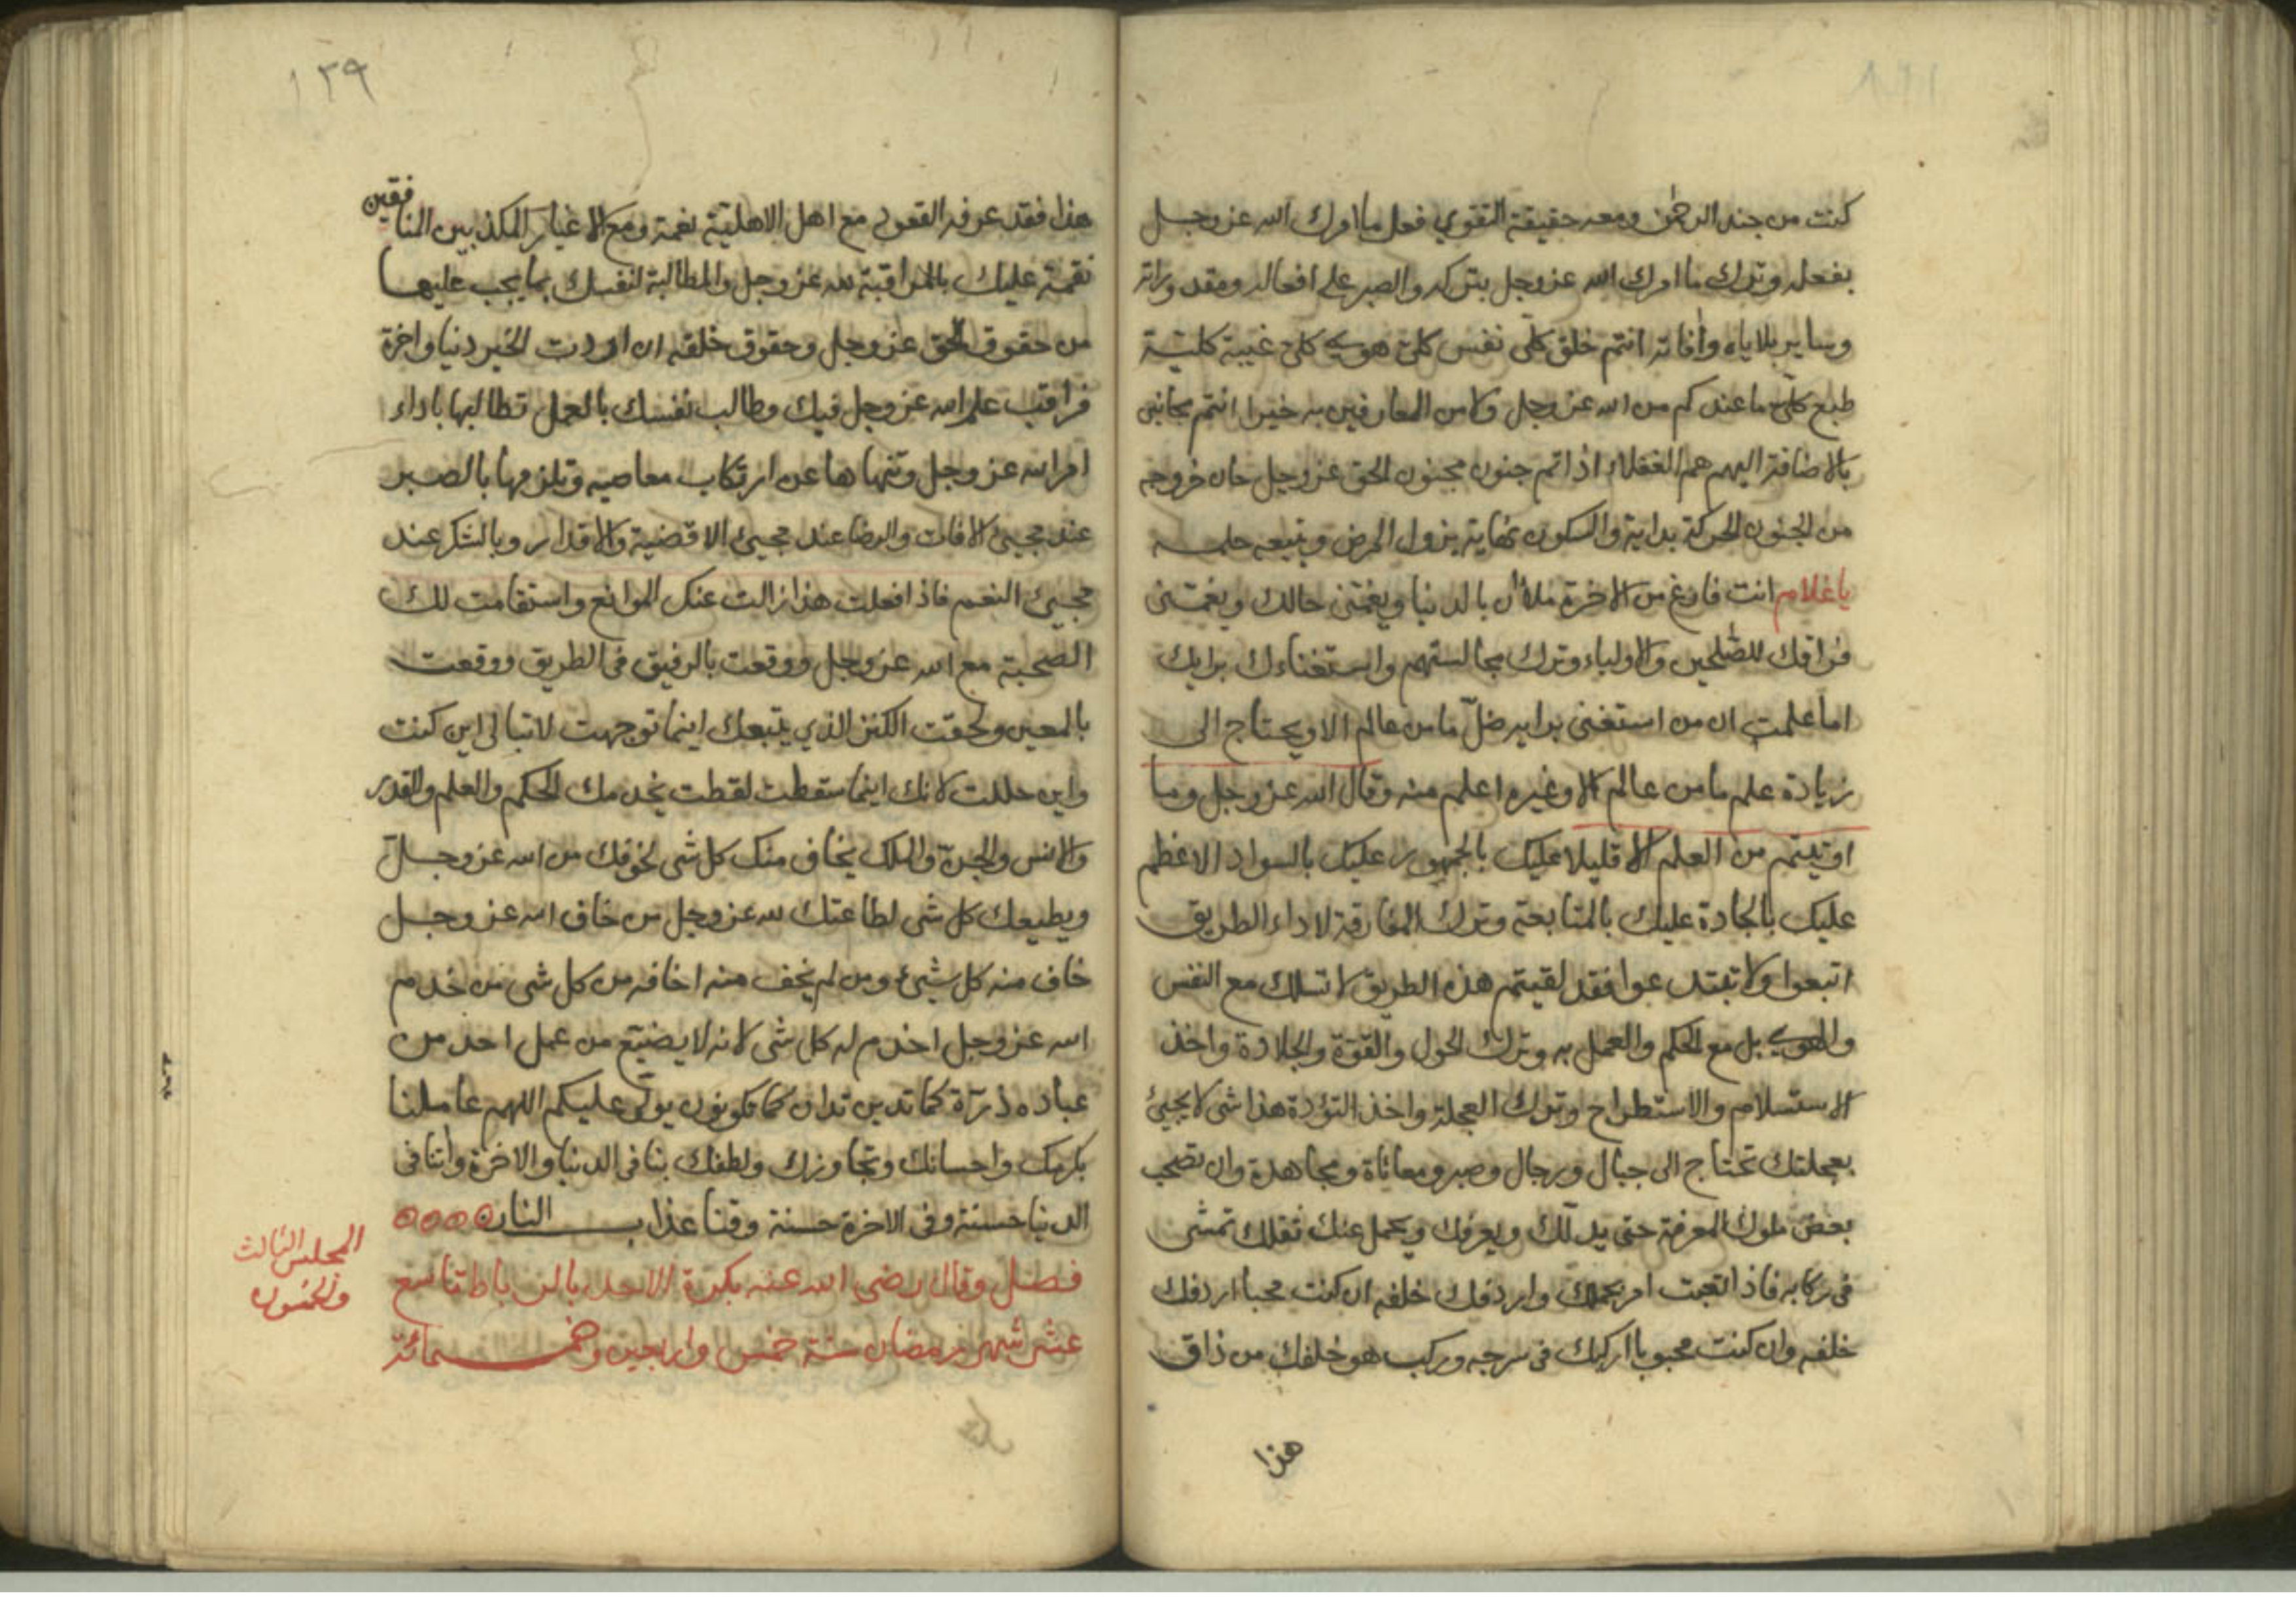 كنت من جند الرحمن ومعه حقيقة التقوي فعل ما امرك الله عز وجل
بفعله وترك ما امرك الله عز وجل بتركه والصبر على افعاله ومقدوراته
وساير بلاياه وآفاته انتم خلق كلي نفس كلي هوي كلي غيبة كلية
طبع كلي ما عندكم من الله عز وجل ولا من العارفين به خيرا انتم مجانين
بالاضافة اليهم هم العقلاء اذا تم جنون مجنون الحق عز وجل حان خروجه
من الجنون الحركة بداية والسكون نهاية يزول المرض ويتبعه
يا غلام انت فارغ من الاخرة ملآن بالدنيا ويغمني حالك ويغمني
فراقك للصلحين والاولياء وترك مجالستهم واستغناءك برايك
اما علمت ان من استغنى برايه ضلّ ما من عالم الا ويحتاج الى
زيادة علم ما من عالم الا وغيره اعلم منه وقال الله عز وجل وما
اوتيتم من العلم الا قليلا عليك بالجمهور عليك بالسواد الاعظم
عليك بالجادة عليك بالمتابعة وترك المفارقة لاداء الطريق
اتبعوا ولا تبتدعوا فقد لقيتم هذه الطريق لا تسلك مع النفس
والهوي بل مع الحكم والعمل به وترك الحول والقوّة والجلادة واخذ
الاستسلام والاستطراح وترك العجلة واخذ التؤدة هذا شى لا يجيئ
بعجلتك تحتاج الى حبال ورجال وصبر ومعاناة ومجاهدة وان تصحب
بعض ملوك المعرفة حتى يدلّك ويعرفك ويحمل عنك ثقلك تمشى
فى ركابه فاذا تعبت امر بحملك واردفك خلفه ان كنت محبا اردفك
خلفه وان كنت محبوبا اركبك فى سرجه وركب هو خلفك من ذاق
هذا
١٣٩
هذا فقد عرفه القعود مع اهل الاهلية نعمة ومع الاغيار المكذبين المنافقين
نقمة عليك بالمراقبة لله عز وجل والمطالبة لنفسك بما يجب عليها
من حقوق الحق عز وجل وحقوق خلقه ان اردت الخير دنيا واخرة
فراقب علم الله عز وجل فيك وطالب نفسك بالعمل تطالبها باداء
امر الله عز وجل وتنهاها عن ارتكاب معاصيه وتلزمها بالصبر
عند مجيئ الافات والرضا عند مجيئ الاقضية والاقدار وبالشكر عند
مجيئ النعم فاذا فعلت هذا زالت عنك الموانع واستقامت لك
الصحبة مع الله عز وجل ووقعت بالرفيق فى الطريق ووقعت
بالمعين ولحقت الكنز الذي يتبعك اينما توجهت لا تبالى اين كنت
واين حللت لانك اينما سقطت لقطت يخدمك الحكم والعلم والقدر
والانس والجنّ والملك يخاف منك كل شى لخوفك من الله عز وجل
ويطيعك كل شى لطاعتك لله عز وجل من خاف الله عز وجل
خاف منه كل شيئ ومن لم يخف منه اخافه من كل شى من خدم
الله عز وجل اخدم له كل شى لانه لا يضيّع من عمل احد من
عباده ذرّة كما تدين تدان كما تكونون يولّى عليكم اللهم عاملنا
بكرمك واحسانك وتجاوزك ولطفك بنا فى الدنيا والاخرة وآتنا فى
الدنيا حسنة وفى الاخرة حسنة وقنا عذاب النار
فصل وقال رضى الله عنه بكرة الاحد بالرباط تاسع
عشر شهر رمضان سنة خمس واربعين وخمسمائة
المجلس الثالث
والخمسون